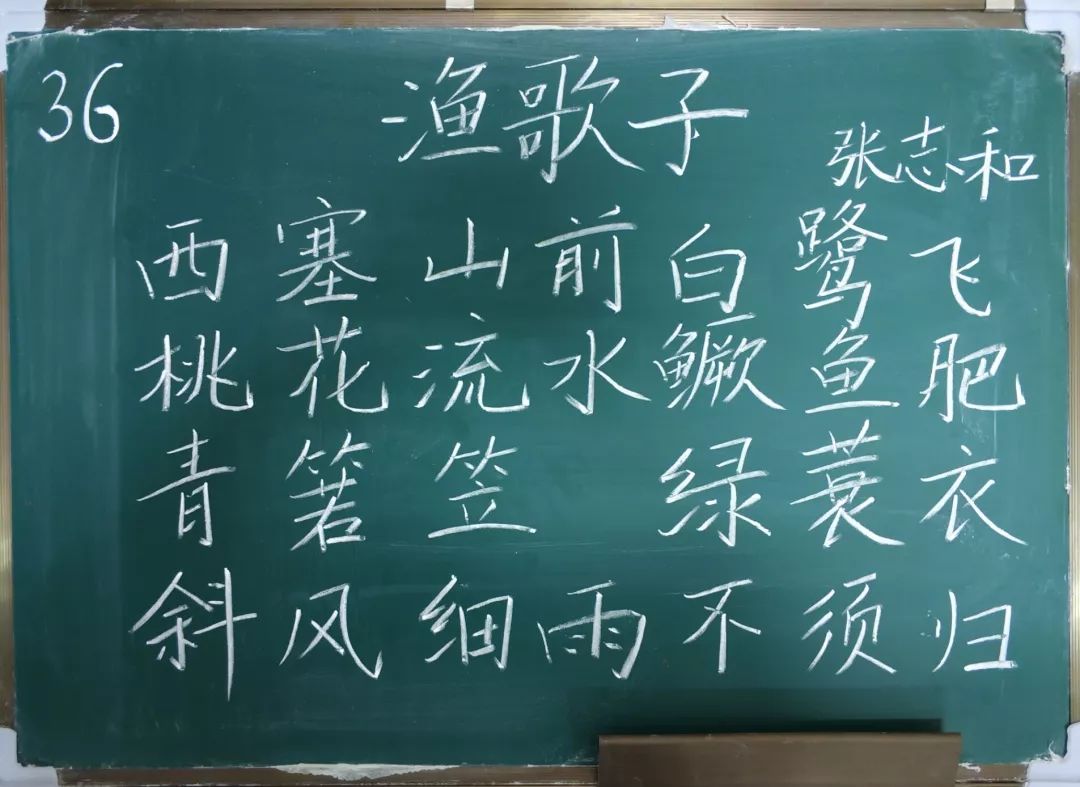 36
渔歌子
张志和
西塞山前白鹭飞
桃花流水鳜鱼肥
青箬笠 绿蓑衣
斜风细雨不须归